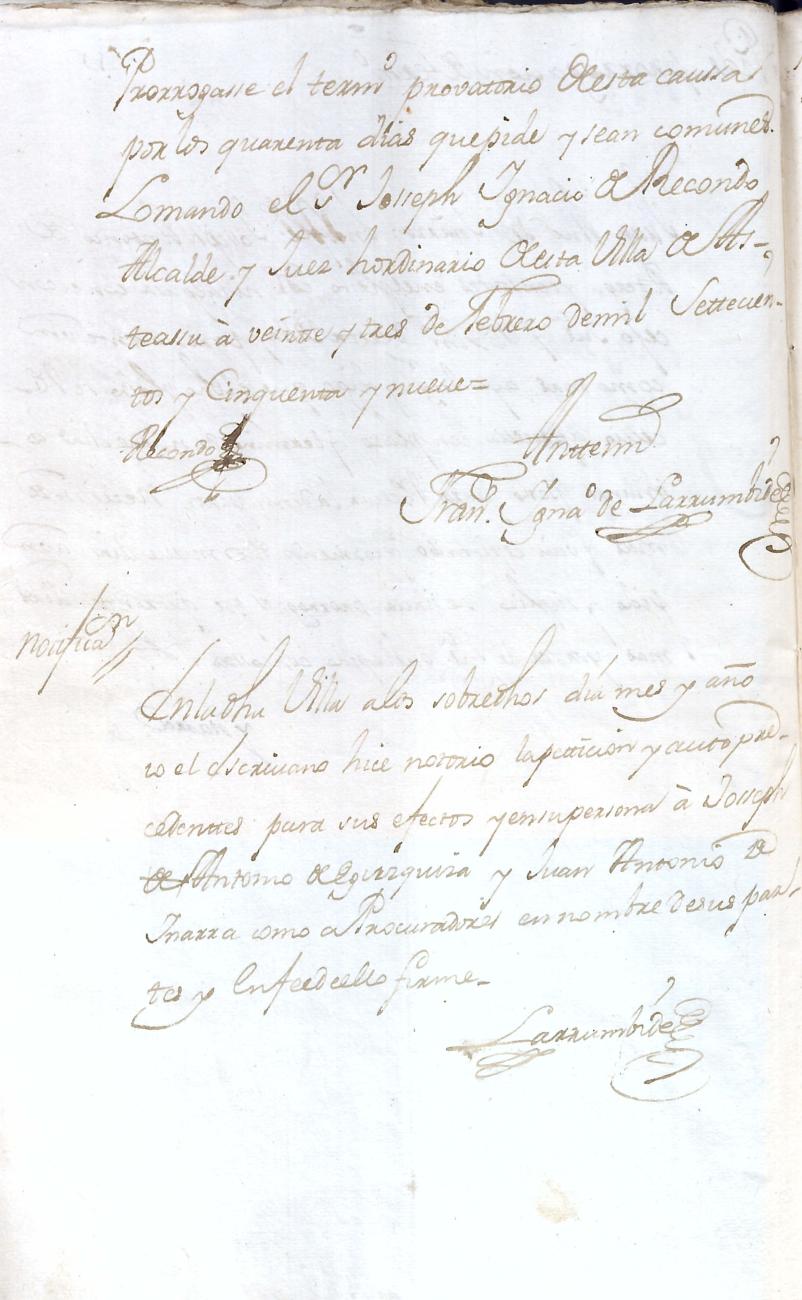 Prorrogasse el termº provatorio de esta caussa
por los quarenta dias que pide y sean comunes.
Lo mando el Sor Josseph Ygnacio de Recondo
Alcalde y Juez hordinario de esta Villa de As-
teassu à veinte y tres de Febrero de mil Settecien-
tos y Cinquenta y nueve=
Recondo
Antte mi
Franco. Ygnaº de Larrumbide
Notificaon
En la dha Villa a los sobredhos dia mes y año
io el escrivano hice notorio la petticion y auto pre-
cedenttes para sus efectos y en su persona à Josseph
de Antonio de Eguzquiza y Juan Antonio de
Ynarra como a Procuradores en nombre de sus par-
tes y En fee de ello firme-
Larrumbide